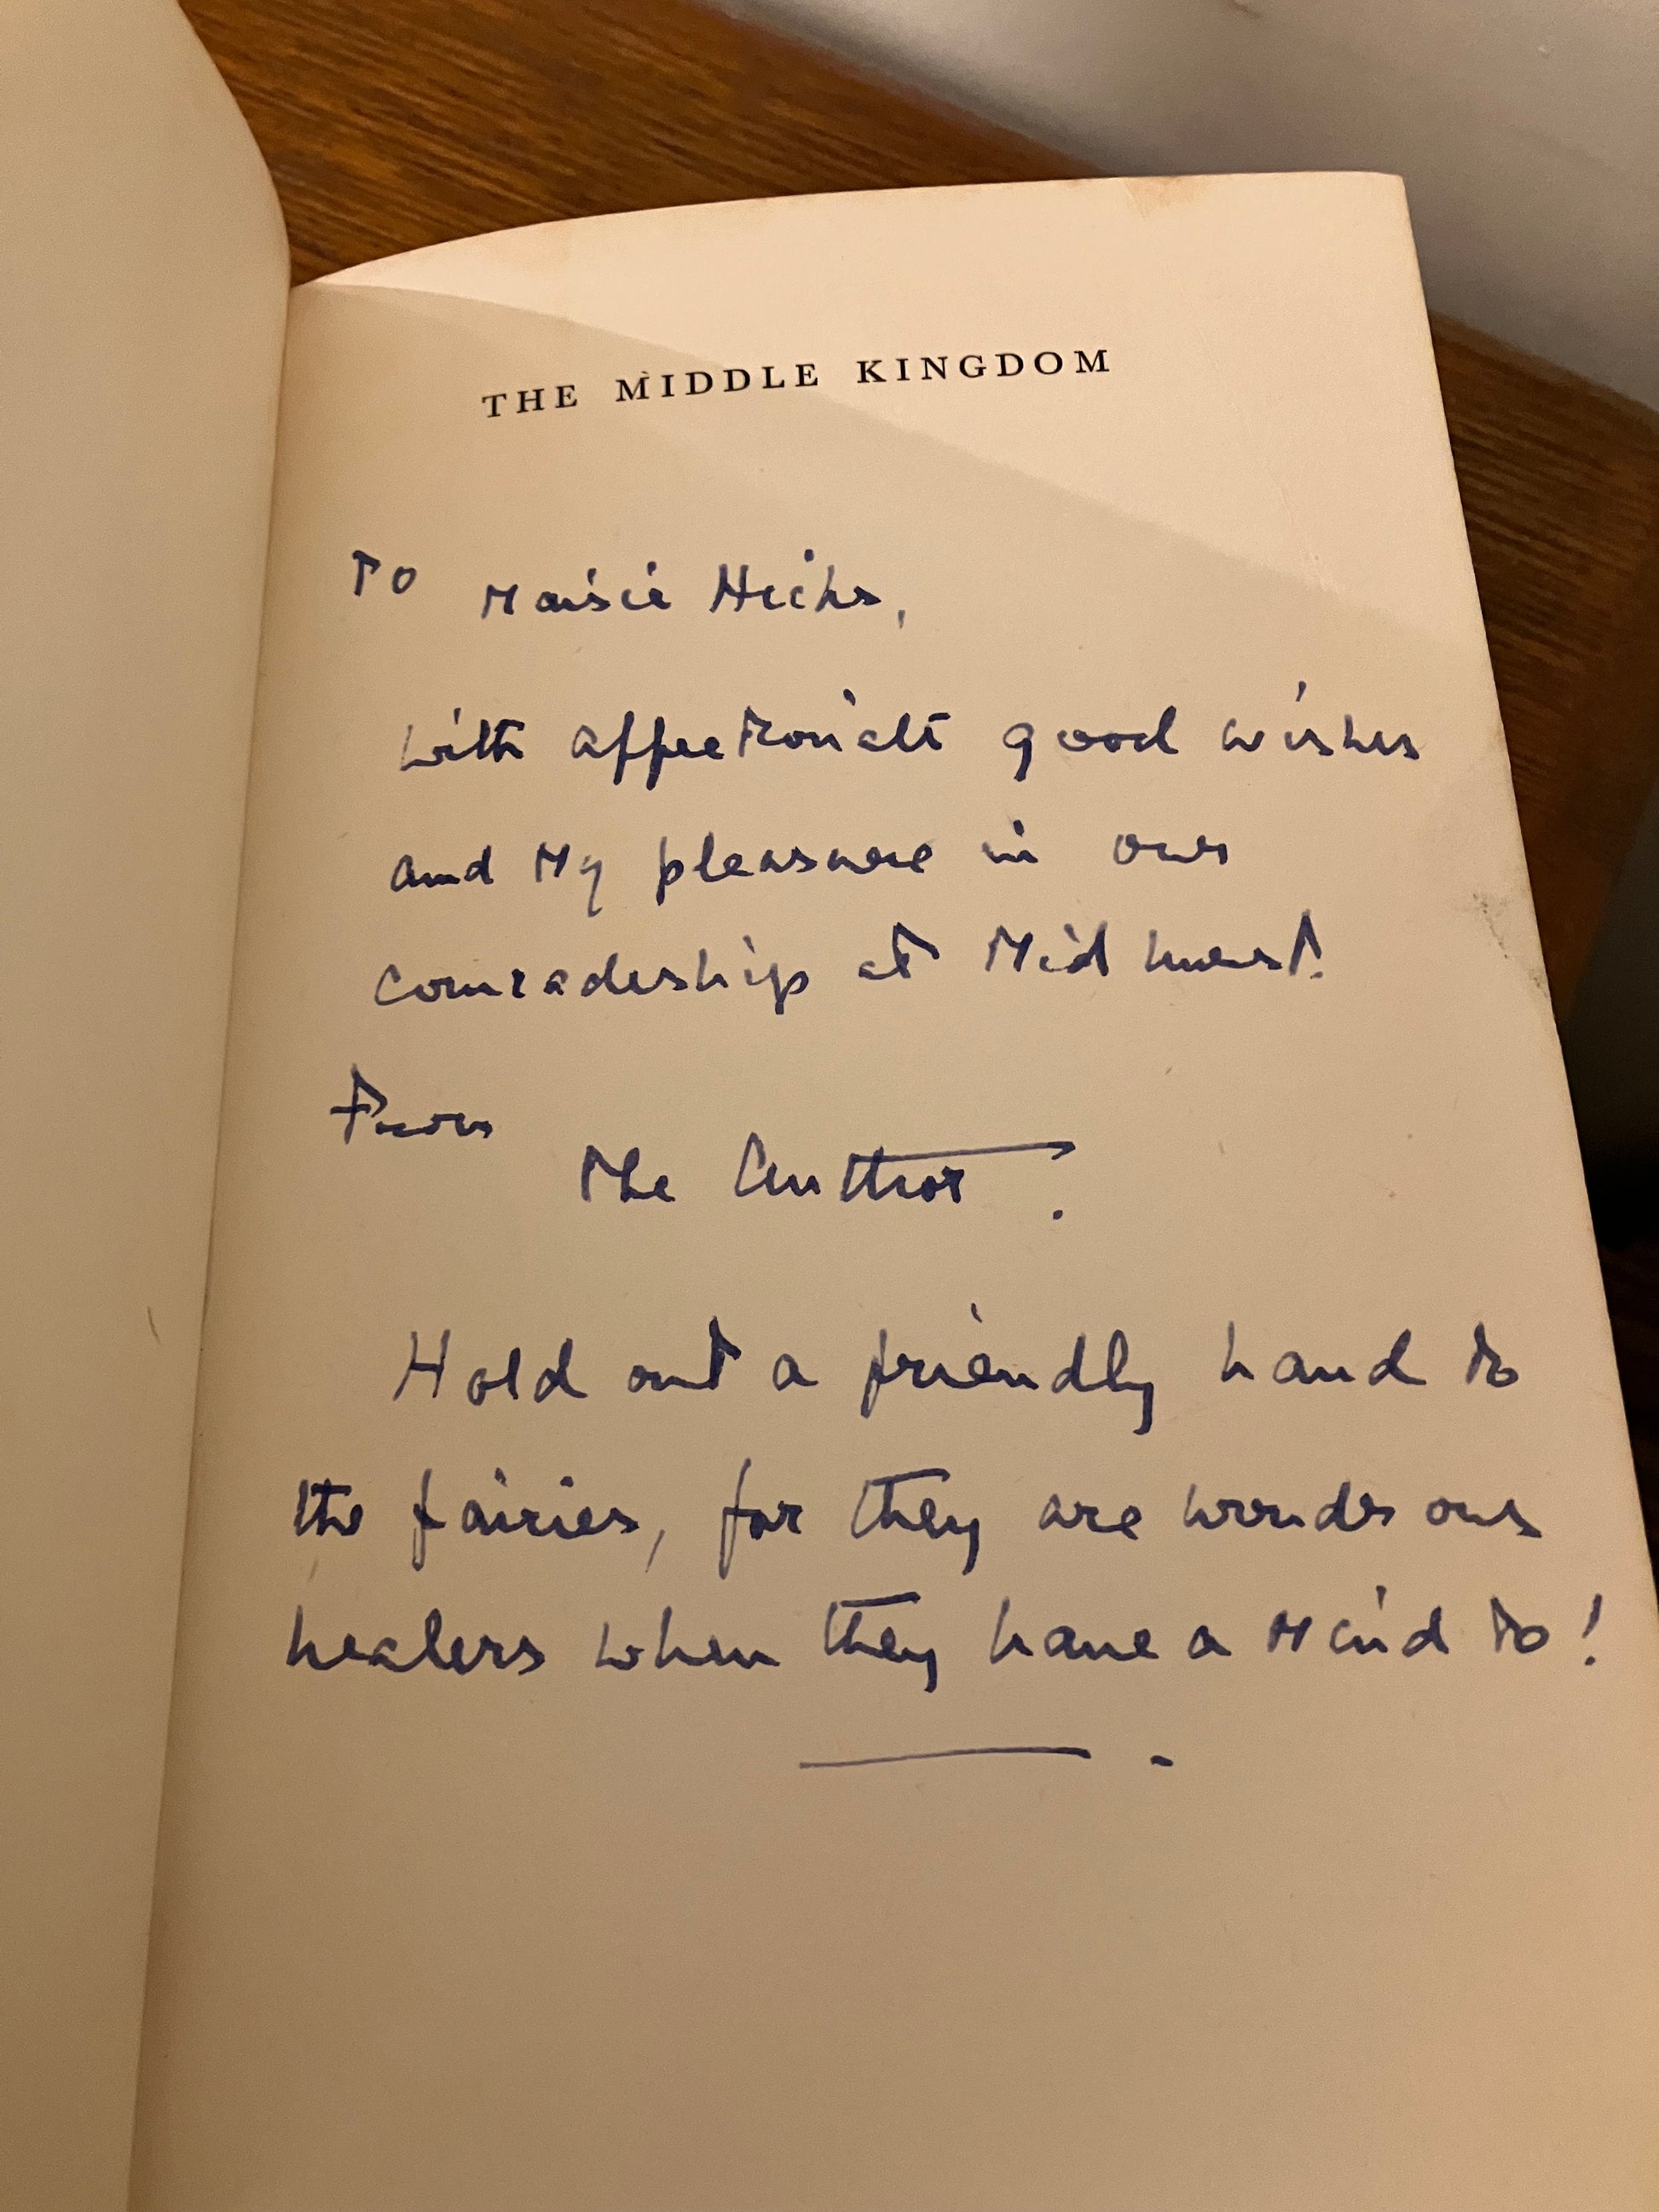 THE MIDDLE KINGDOM
To Maisie Hicks,
with affectionate good wishes
and My pleasure in our
comradeship at Midhurst.
From
The Author.
Hold out a friendly hand to
the fairies, for they are wondrous
healers when they have a Mind to!